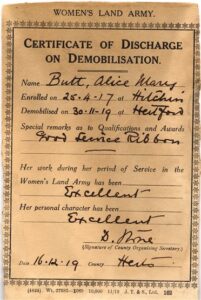 WOMEN'S LAND ARMY.
CERTIFICATE OF DISCHARGE
ON DEMOBILISATION.
Name Butt, Alice Mary
Enrolled on 25-4-17 at Hitchin
Demobilised on 30-11-19 at Hertford
Special remarks as to Qualifications and Awards
Good Service Ribbon
Her work during her period of Service in the
Women's Land Army has been
Excellent
Her personal character has been
Excellent
D. Stone
(Signature of County Organising Secretary.)
Date 16-12-19 County Herts
J. T. & S., Ltd. 162